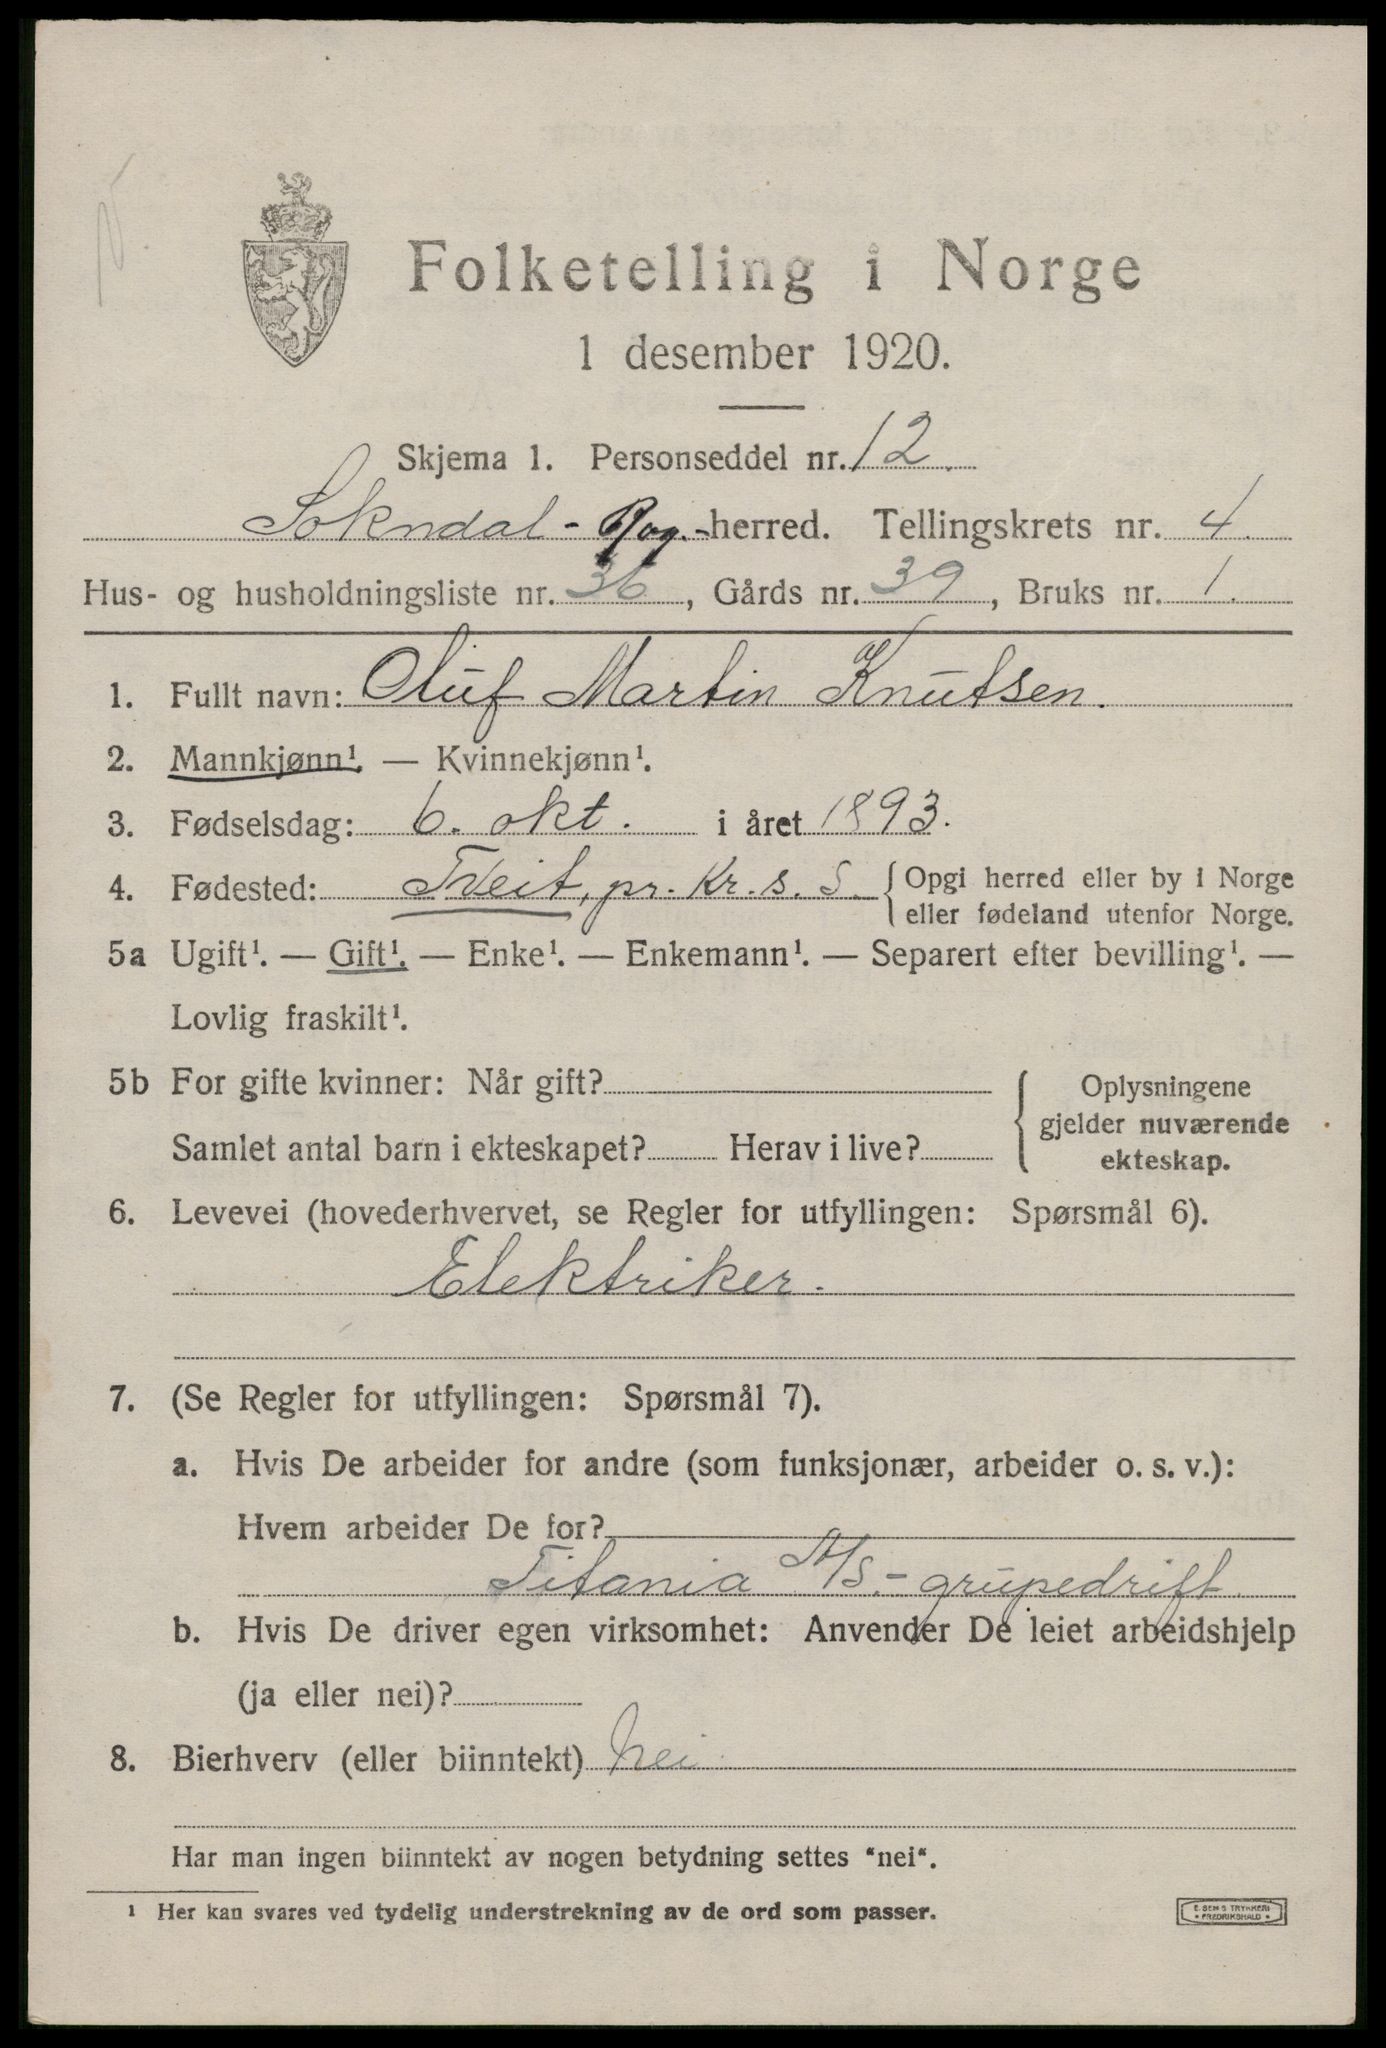 Folketelling i Norge
1 desember 1920.
Skjema 1. Personseddel nr. 12.
Sokndal - Rog.-herred. Tellingskrets nr. 4.
Hus- og husholdningsliste nr. 36, Gårds nr. 39, Bruks nr. 1.
1. Fullt navn: Oluf Martin Knutsen.
2. Mannkjønn¹. — Kvinnekjønn¹.
3. Fødselsdag: 6. okt. i året 1893.
4. Fødested: Tveit, pr. Kr. s. S. { Opgi herred eller by i Norge
eller fødeland utenfor Norge.
5a Ugift¹. — Gift¹. — Enke¹. — Enkemann¹. — Separert efter bevilling¹. —
Lovlig fraskilt¹.
5b For gifte kvinner: Når gift? { Oplysningene
gjelder nuværende
Samlet antal barn i ekteskapet? Herav i live?
ekteskap.
6. Levevei (hovederhvervet, se Regler for utfyllingen: Spørsmål 6).
Elektriker.
7. (Se Regler for utfyllingen: Spørsmål 7).
a. Hvis De arbeider for andre (som funksjonær, arbeider o. s. v.):
Hvem arbeider De for?
Titania A/S.- grupedrift.
b. Hvis De driver egen virksomhet: Anvender De leiet arbeidshjelp
(ja eller nei)?
8. Bierhverv (eller biinntekt) Nei
Har man ingen biinntekt av nogen betydning settes "nei".
¹ Her kan svares ved tydelig understrekning av de ord som passer.
E. SEM'S TRYKKERI
• FREDRIKSHALD •